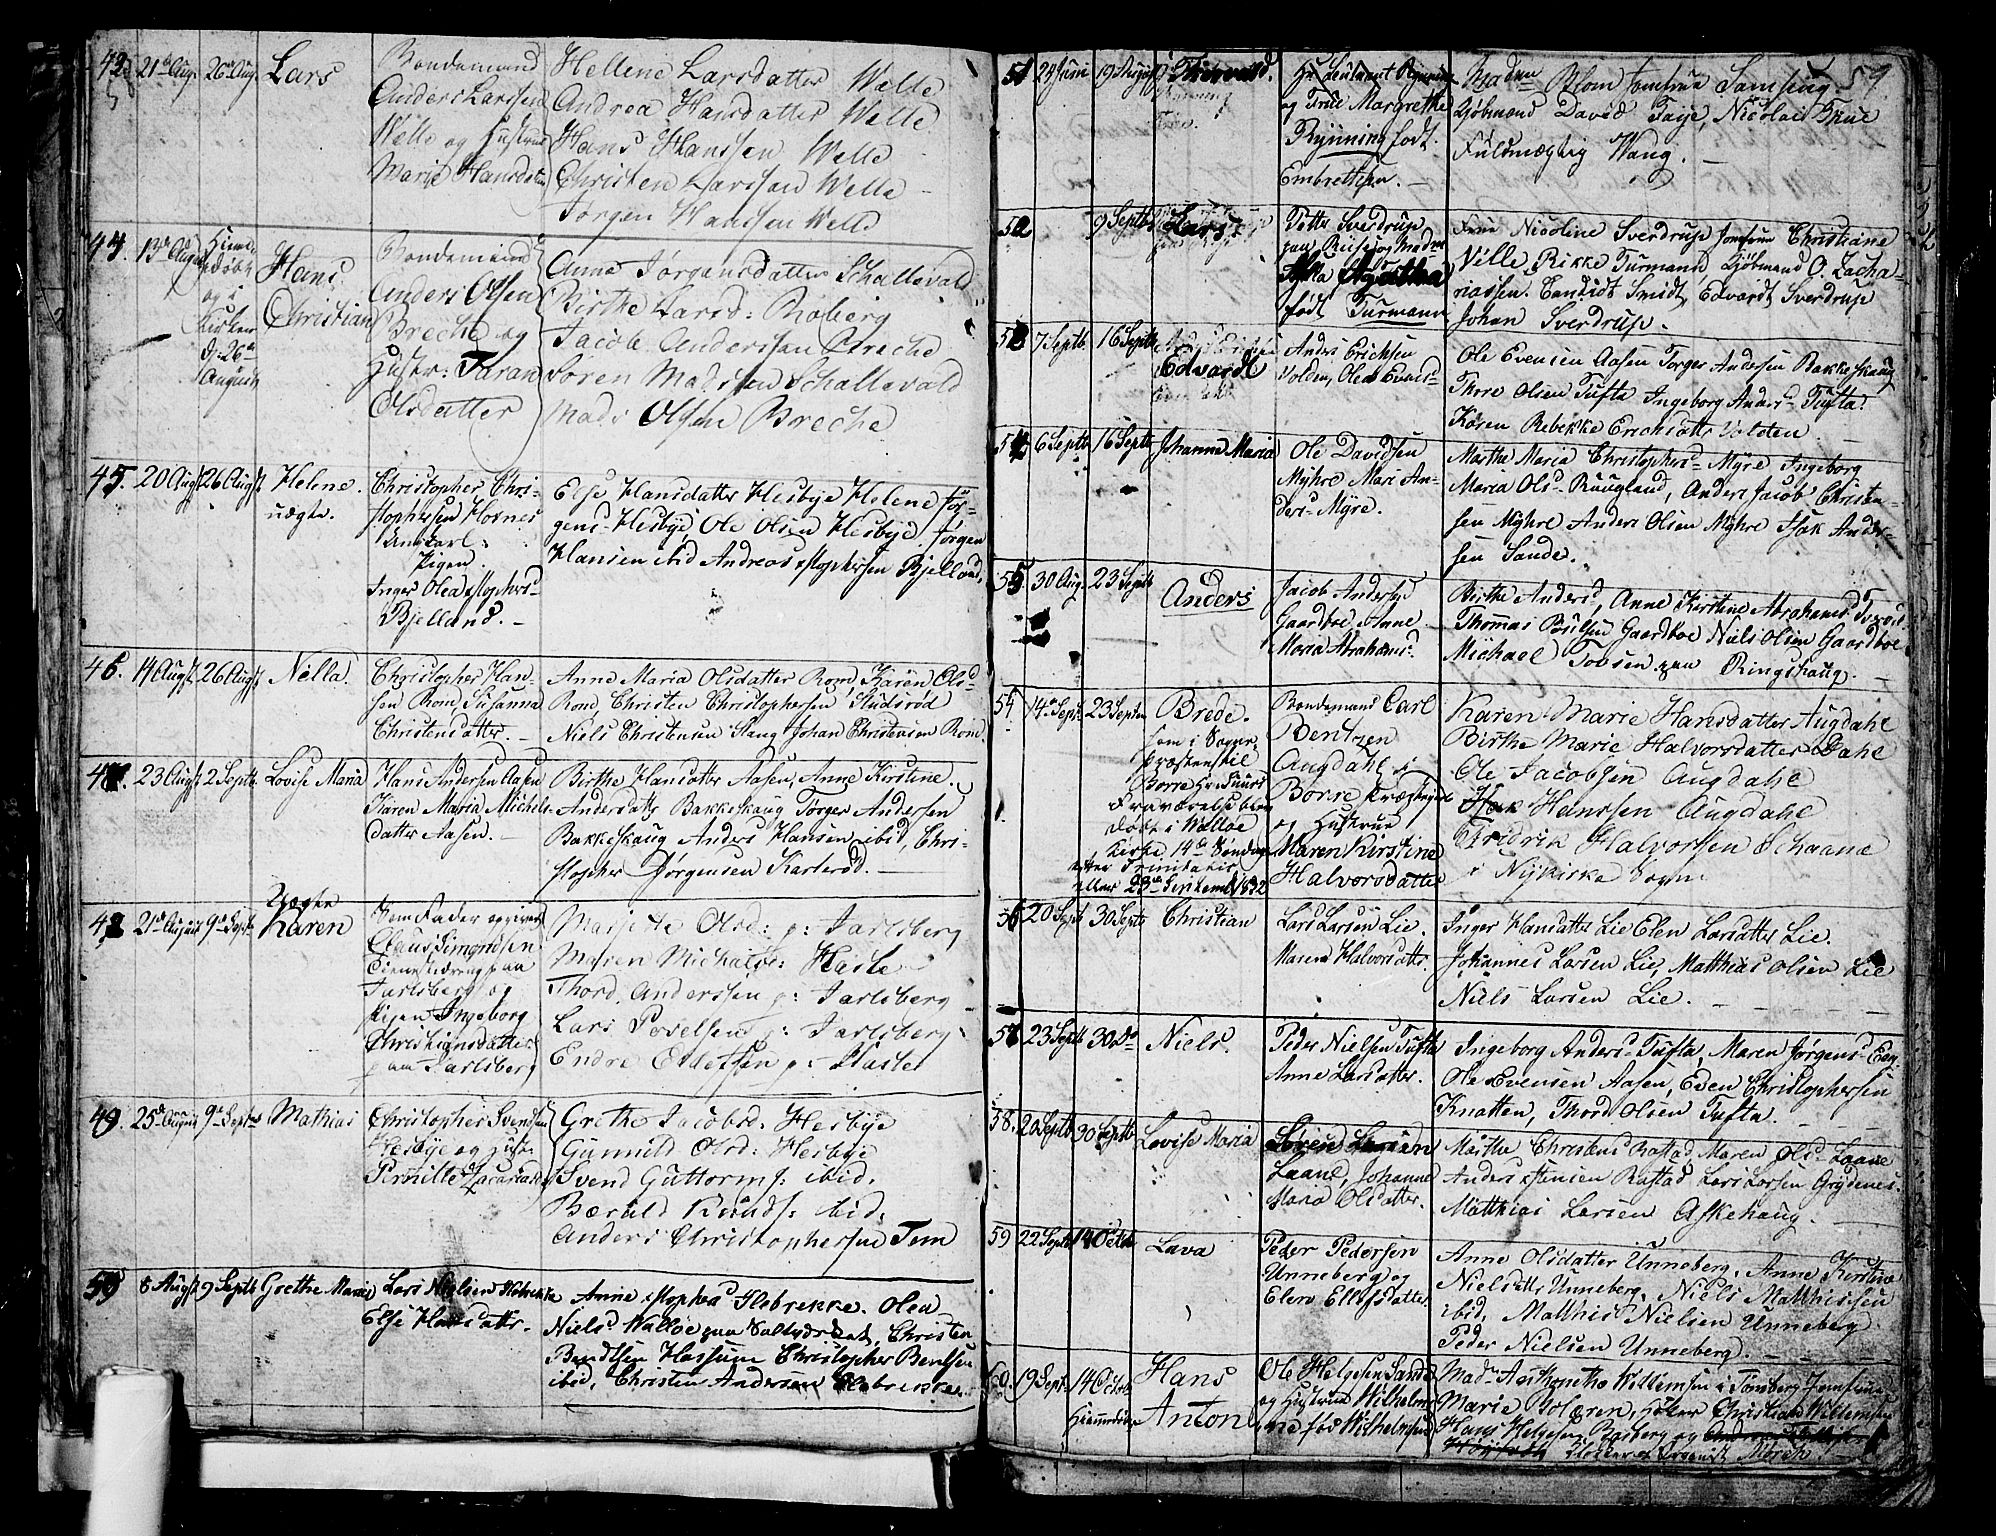 43. 21de Aug. 26de Aug. Lars
Bondemand
Anders Larssen
Welle og Hustrue
Marie Hansdatter
Hellene Larsdatter Welle
Andrea Hansdatter Welle
Hans Hanssen Welle
Christen Larssen Welle
Jørgen Hanssen Welle
44. 13de Aug.
og i
Kirken
d. 26de
August
Hans
Christian
Bondemand
Anders Olsen
Breche og
Hustr: Taran
Olsdatter
Anne Jørgensdatter Schallevald
Birthe Larsd: Roberg
Jacob Anderssen Breche
Søren Madssen Schallevald
Mads Olsen Breche
45. 20 Augst 26 Augst Helene
uægte.
Christopher Chri-
stophersen Hornes
Ungkarl:
Pigen
Inger Olea xstophers-
Bjelland. -
Else Hansdatter Hesbye Helene Jør-
gens- Hesbye, Ole Olsen Hesbye. Jørgen
Hansen ibid Andreas xstophersen Bjelland.
46. 14 Augst 26 Augst Nella.
Christopher Han-
sen Rom, Susanna
Christensdatter. -
Anne Maria Olsdatter Rom, Karen Ols-
Rom, Christen Christophersen Studsrød
Niels Christensen Haug Johan Christensen Rom.
47. 23 Augst 2 Septb. Lovise Maria
Hans Andersen Aasen
Karen Maria Michels-
datter Aasen. -
Birthe Hansdatter Aasen, Anne Kirstine
Andersdattr Bakkeskaug Torger Andersen
Bakkeskaug Anders Hansen ibid, Chri-
stopher Jørgensen Karlerød. -
48 21de August 9de Septr
Uægte
Karen
Som Fader opgives
Claus Simonssen
Tienestedreng paa
Jarlsberg og
Pigen Ingeborg
Christiansdatter
paa Jarlsberg
Majette Olsd: p: Jarlsberg
Maren Michalsd: Hasle
Thord Anderssen p: Jarlsberg
Lars Povelsen p: Jarlsberg
Endre p: Hasle
49. 25de August 9de Septbr Mathias
Christopher Svendsen
Hesbye og Hust:
Pernille Zacariasd
Grethe Jacobsd: Hesbye
Gunnild Olsd: Hesbye
Svend Guttorms: ibid.
Bærald Knuds: ibid.
Anders Christophersen Tem
50 8 Augst 9 Septb Grethe Maria
Lars Nielsen Hebrekke
Else Hansdattr.
Anne xstophsd Hebrekke. Olea
Nielsd Walløe paa Christen
Bendtsen Hassum Christopher Bentsen
ibid, Christen Andersen Hebrekke
59
51 24 Juni 19 August
Hr. Leutnant Rynning
og Frue Margrethe
Rynning født
Embretsen. -
Madm Blom Jomfrue Samsing
Kjøbmand David Faye, Nicolai True
Fuldmægtig Wang. -
52 9 Septb Lars
Petter Sverdrup
paa
født Turmann.
Frue Nicoline Sverdrup Jomfrue Christiane
Ville, Rikke Turmann, Kjøbmand O. Zacha-
riassen. Candidt Smidt, Edvardt Sverdrup
Johan Sverdrup.
53 7 Septb. 16 Septb Edvardt
Anders Erichsen
Volden, Olea Evens-
Ole Evensen Aasen Torger Andersen Bakkeskaug
Thore Olsen Tufta Ingeborg Anders- Tufta.
Karen Rebekke Erichsdattr Volden. -
54 6 Septb 16 Septb Johanne Maria
Ole Davidsen
Myhre Mari An-
ders- Myre.
Marthe Maria Christophers- Myre Ingeborg
Maria Ols- Rougland, Anders Jacob Christen-
sen Myhre Anders Olsen Myhre Isak Ander-
sen Sande.
55 30 Aug. 23 Septb Anders
Jacob Anders
Gaardboe Anne
Maria Abrahams-
Birthe Andersd, Anne Kirstine Abrahamsd
Thomas Poulsen Gaardboe Niels Olsen Gaardboe
Michael Tovsen paa Ringshaug. -
54. 14de Septb 23 Septbr Brede.
som i Sogne-
præstens til
Borre Hr.
Fraværelse blev
døbt i Walløe
Kirke 14de Søndag
efter Trinitatis
eller 23de Septembr 1832
Bondemand Carl
Bentzen
Augdahl i
Borre Præstegjeld
og Hustrue
Maren Kirstine
Halvorsdatter
Karen Marie Hansdatter Augdahl
Birthe Marie Halvorsdatter Dahl
Ole Jacobsen Augdahl
Hanssen Augdahl
Fridrik Halvorsen Schaane
i Nykirke Sogn
56 20 Septb 30 Septb Christian
Lars Larsen Lie.
Maren Halvorsdattr.
Inger Hansdatter Lie Elen Larsdatter Lie.
Johannes Larsen Lie, Matthias Olsen Lie
Niels Larsen Lie. -
57 23 Septb 30 do Niels.
Peder Nielsen Tufta
Anne Larsdatter.
Ingeborg Anders- Tufta, Maren Jørgens-
Ole Evensen Aasen, Even Christophersen
Knatten, Thord Olsen Tufta. -
58. 20 Septb 30 Septb Lovise Maria
Søren Larsen
Laane, Johanne
Maria Olsdatter.
Marthe Christens Rastad Maren Ols- Laane
Anders xstensen Rastad Lars Larsen Grydenes.
Matthias Larsen Askehaug. -
59 22 Septb 14 Octob Lava
Peder Pedersen
Unneberg og
Elen Ellefsdatter
Anne Olsdatter Unneberg, Anne Kirstine
Nielsdttr Unneberg, Niels Matthissen
ibid, Matthis Nielsen Unneberg
Peder Nielsen Unneberg. -
60. 19 Septr. 14 Octob.
Hiemmedøbt
Hans
Anton
Ole Helgesen Sande
og Hustrue Wilhelm-
ine fød Wilhelmsen
Madm Willemsen i Tønsberg Jomfrue
Marie Bolæren, Christian Willemsen
Hans Helgesen Basberg og
Klokker og Organist March